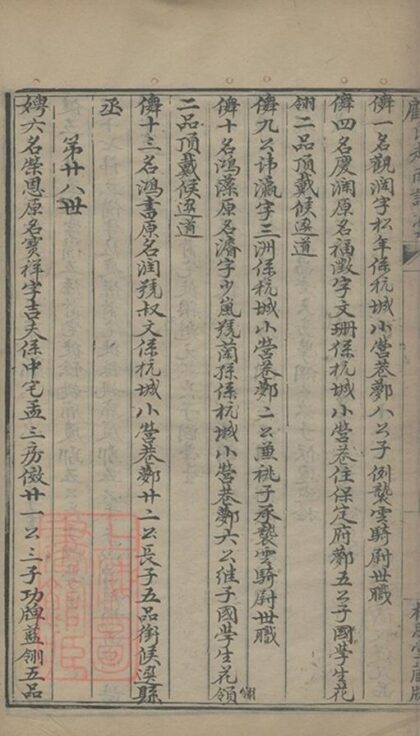 儕一名觀潤字松年係杭城小營巷鄭八公子例襲雲騎尉世職
儕四名慶潤原名福徵字文珊係杭城小營巷住保定府鄭五公子國學生花
翎二品頂戴候選道
儕九公諱瀛字三洲係杭城小營巷鄭二公兼祧子承襲雲騎尉世職
儕十名鴻藻原名濬字少嵐號蘭孫係杭城小營巷鄭六公繼子國學生花翎
二品頂戴候選道
儕十三名鴻書原名潤號叔文係杭城小營巷鄭廿二公長子五品銜候選縣
丞
第廿八世
娉六名榮恩原名寶祥字吉夫係中宅孟三房儆廿一公三子功牌藍翎五品